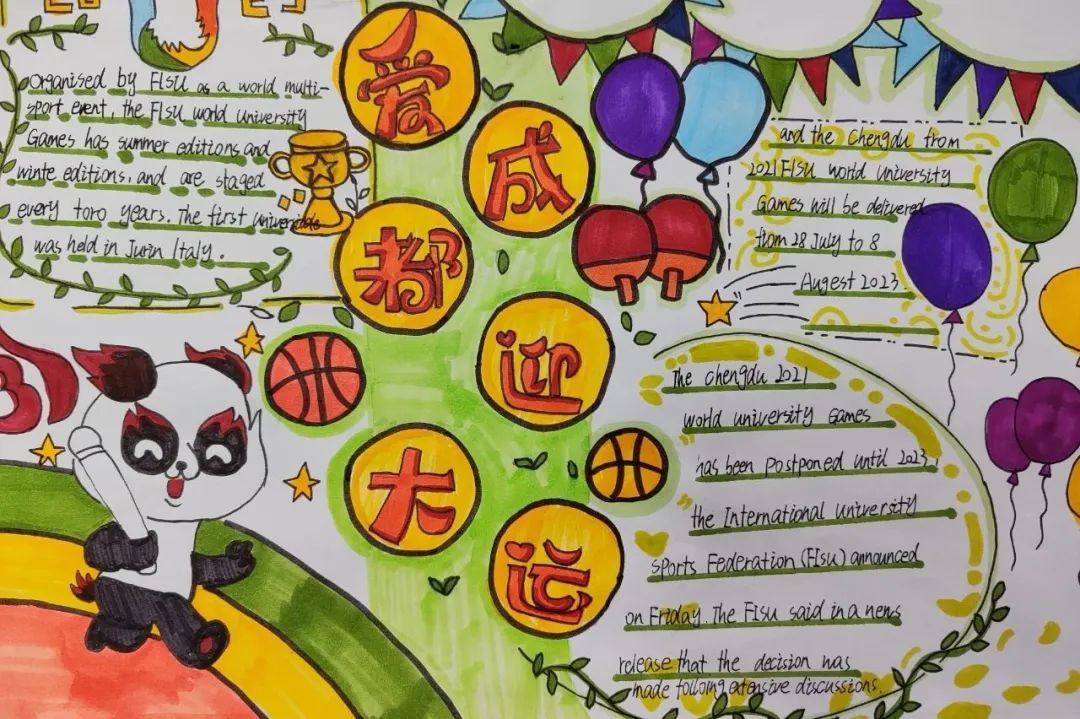 organised by FISU as a world multi-
sport event, the FISU world university
Games has summer editions and
winte editions. and are staged
every toro years. The first universiade
was held in Jurin Italy.
爱
成
都
迎
大
运
and the chengdu from
2021 FISU world university
Games will be delivered
from 28 July to 8
Augest 2023.
The chengdu 2021
world university Games
has been postponed until 2023
the International university
sports Federation (FIsu) announced
on Friday. The FISU said in a news
release that the decision was
made following extensive discussions.